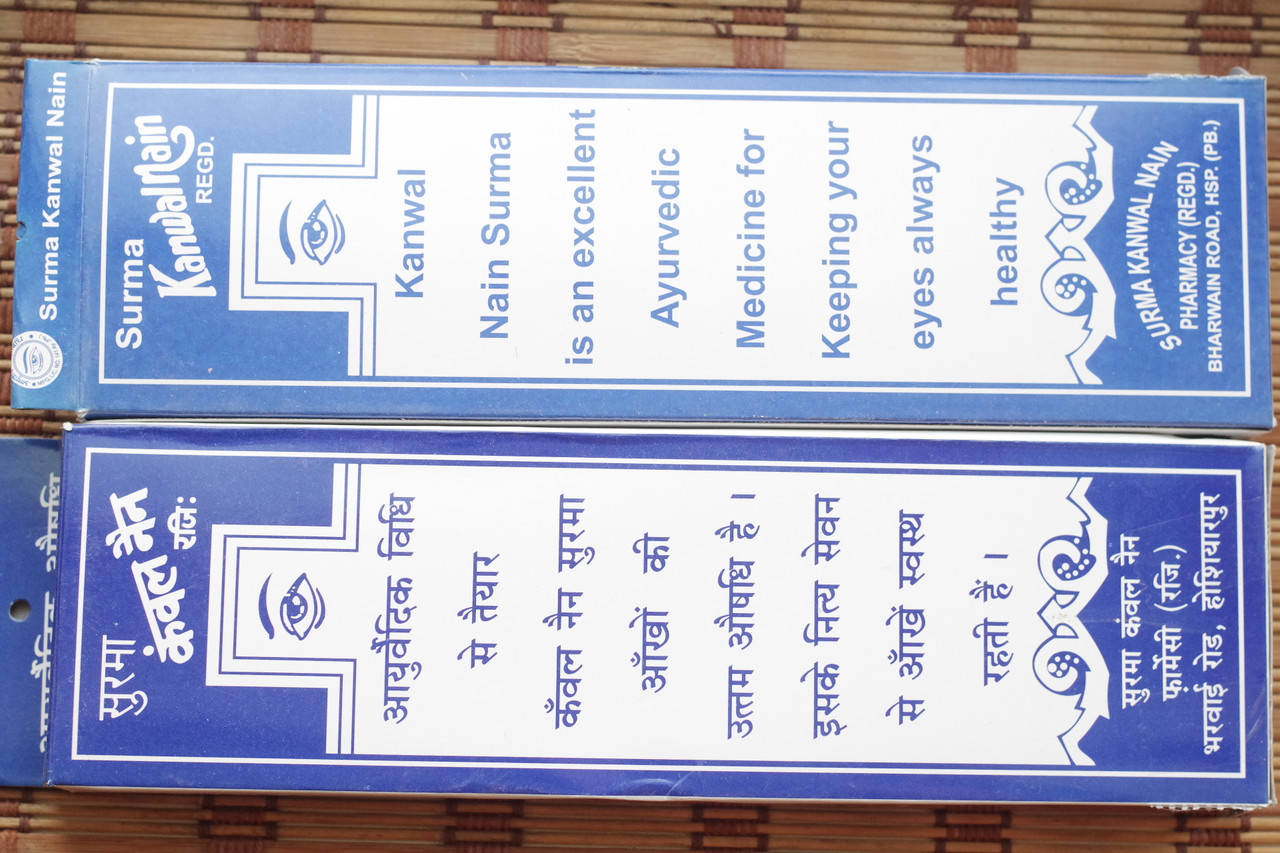 Surma Kanwal Nain
Surma
Kanwal Nain
REGD.
Kanwal
Nain Surma
is an excellent
Ayurvedic
Medicine for
Keeping your
eyes always
healthy
SURMA KANWAL NAIN
PHARMACY (REGD.)
BHARWAIN ROAD, HSP. (PB.)
सुरमा
कंवल नैन
रजि:
आयुर्वेदिक विधि
से तैयार
कँवल नैन सुरमा
आँखों की
उत्तम औषधि है ।
इसके नित्य सेवन
से आँखें स्वस्थ
रहती हैं ।
सुरमा कंवल नैन
फ़ार्मेसी (रजि.)
भरवाई रोड, होशियारपुर